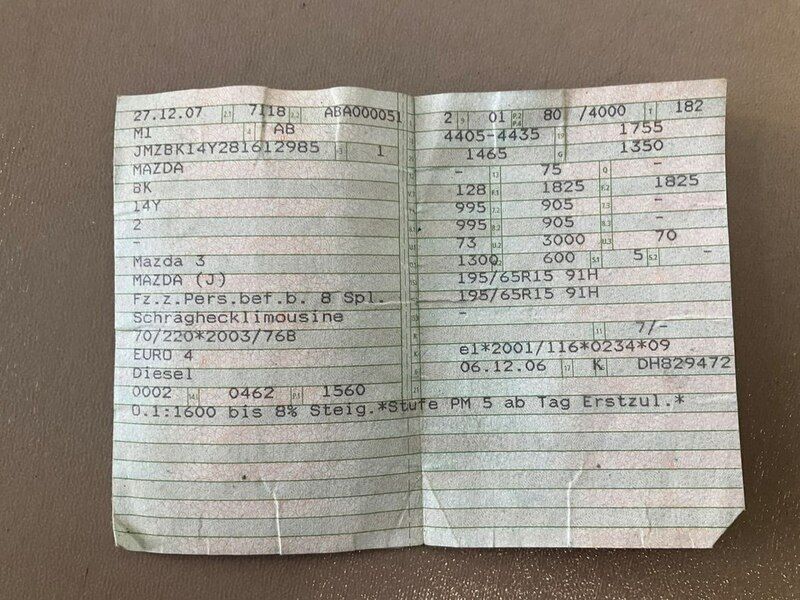 27.12.07 2.1 7118 2.2 ABA000051
M1 4 AB
JMZBK14Y281612985 3 1
MAZDA
BK
14Y
2
-
Mazda 3
MAZDA (J)
Fz.z.Pers.bef.b. 8 Spl.
Schräghecklimousine
70/220*2003/76B
EURO 4
Diesel
0002 14.1 0462 P.1 1560
0.1:1600 bis 8% Steig.*Stufe PM 5 ab Tag Erstzul.*
2 9 01 P.2 P.4 80 /4000 T 182
4405-4435 19 1755
1465 G 1350
- 13 75 Q -
128 F.1 1825 F.2 1825
995 7.2 905 7.3 -
995 8.2 905 8.3 -
73 U.2 3000 U.3 70
1300 O.2 600 S.1 5 S.2 -
195/65R15 91H
195/65R15 91H
-
11 7/-
e1*2001/116*0234*09
06.12.06 17 K DH829472